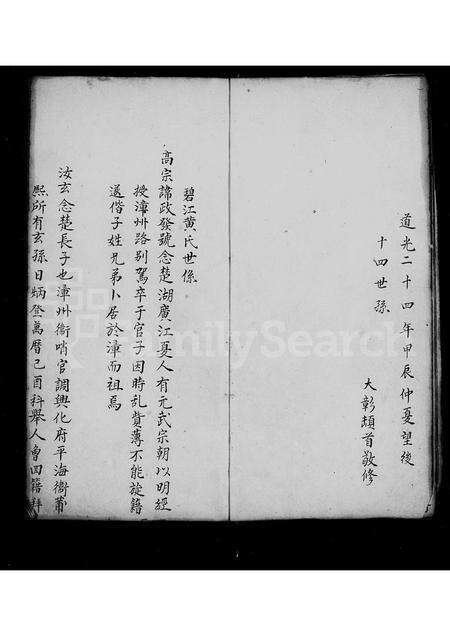 道光二十四年甲辰仲夏望後
十四世孫
大彰頓首敬修
碧江黄氏世係
高宗諱政發號念楚湖廣江夏人有元武宗朝以明經
授漳州路别駕卒于官子因時乱貲薄不能旋籍
遂偕子姓兄弟卜居於漳而祖焉
汝玄念楚長子也漳州衞哨官調興化府平海衞莆
熙所有玄孫日炳登萬曆己酉科舉人會回籍拜
FamilySearch